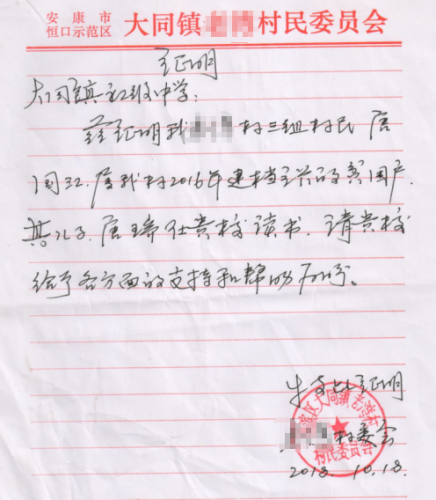 安康市
恒口示范区 大同镇 村民委员会
证明
大同镇初级中学:
兹证明我 村三组村民 唐
，属我村2016年建档立 的贫困户，
其儿子 唐 在贵校读书，请贵校
给予各方面的支持和帮助为盼。
特此证明
村委会
2018.10.18.
区大同镇 村
村民委员会